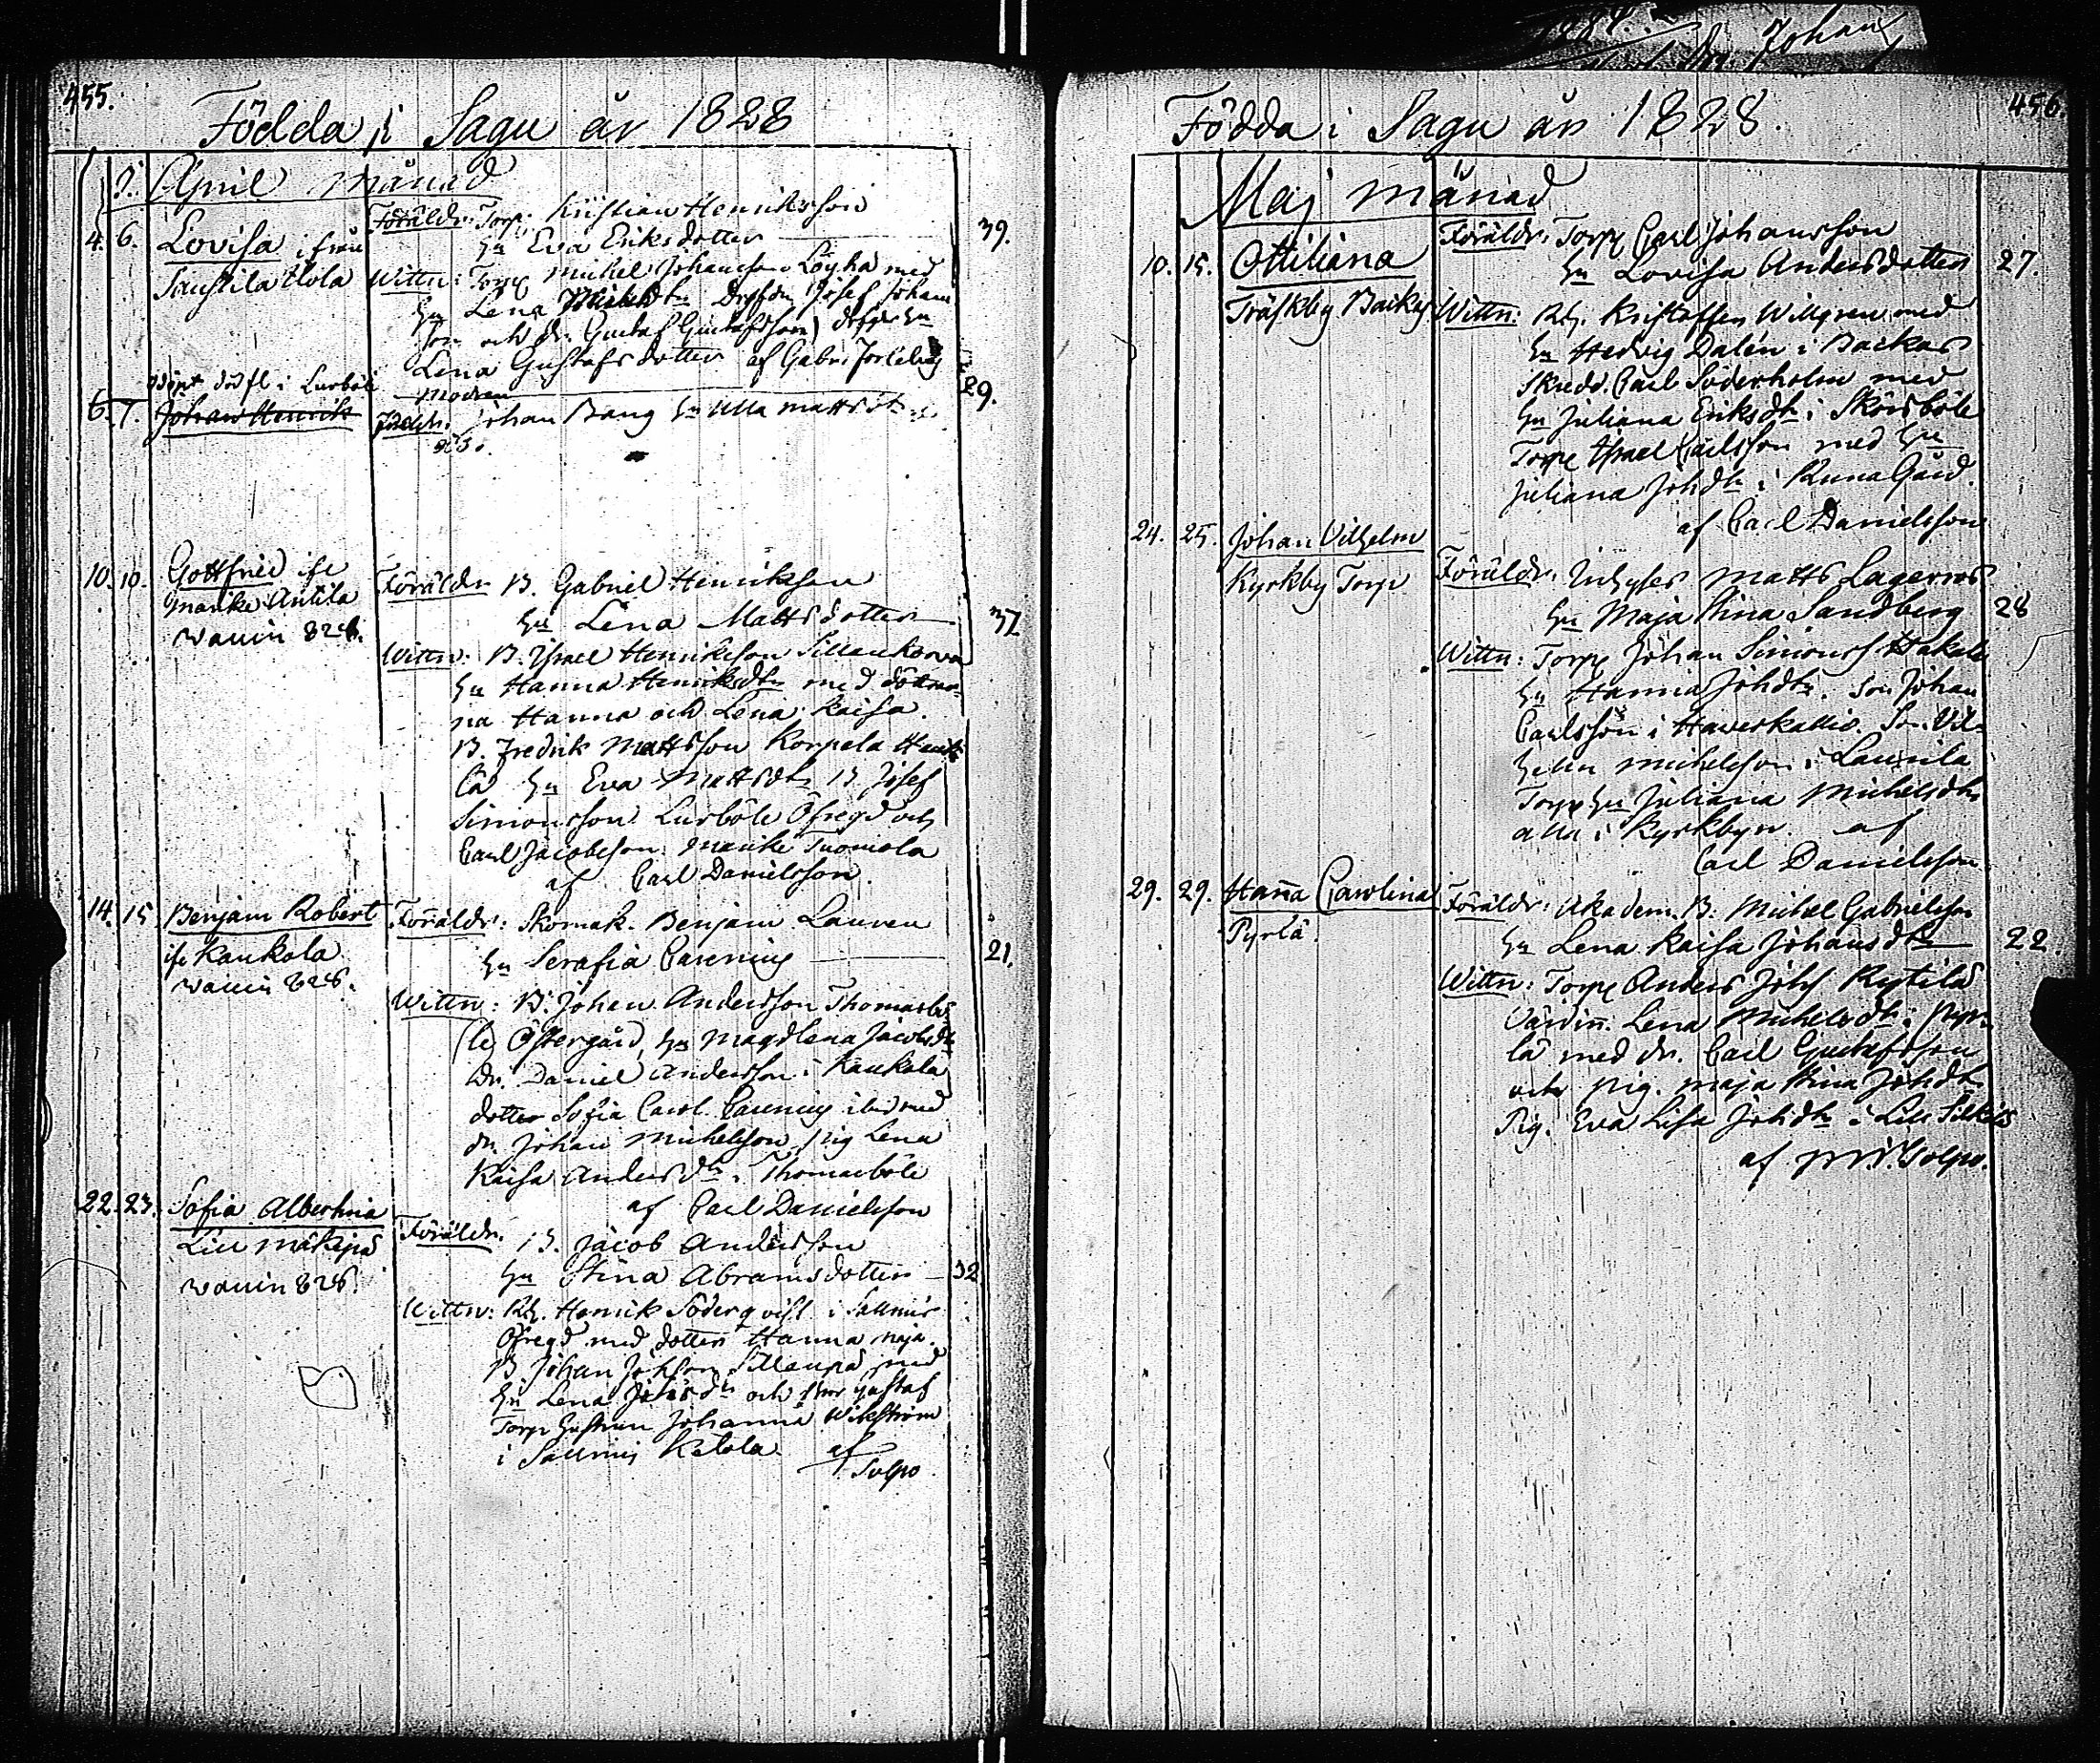 1284. Johan
455.
Födda i Sagu år 1828
April månad
4. 6. Lovisa i från
Saustila Uola
Föräldr: Torp. Kristian Henriksson
hu Eva Eriksdotter 39.
Wittn: Torp Mickel Johansson Löyhä med
hu Lena Dr Josef Johans
son och dr. Gustaf Gustafsson
Lena Gustafsdotter af Gabr.
Modren 29.
dödf. i Lurböle
6. 7. Johan Henrik
Föräldr: Johan Bang hu Ulla Mattsdtr
10. 10. Gottfried
Marike Antila
vaccin 828.
Föräldr B. Gabriel Henriksson
hu Lena Mattsdotter 37
Wittn: B. Israel Henriksson
hu Hanna Henriksdtr med döttrar-
na Hanna och Lena Kaisa.
B. Fredrik Mattsson Korpela
lä hu Eva Mattsdtr B Josef
Simonsson Lurböle Öfregd och
Carl Jacobsson Marike Tuomola
af Carl Danielsson.
14. 15 Benjam Robert
Kaukola
vaccin 828.
Föräldr: Skomak. Benjam Lauren
hu Serafia Carenius 21.
Wittn: B. Johan Andersson Thomasbö
(le Östergård, hu Magdlena Jacobsdtr
Dr. Daniel Andersson i Kaukola
dotter Sofia Carol. Carenius med
dr. Johan Michelsson, pig Lena
Kaisa Andersdtr i Thomasböle
af Carl Danielsson
22. 23. Sofia Albertina
Lill Mäkipä
vaccin 828.
Föräldr. B. Jacob Andersson
hu Stina Abramsdotter 32
Wittn: Rh. Henrik Söderqvist i Sallmis
Öfregd med dotter Hanna Maja.
B. Johan Johsson Sillanpä med
hu Lena Johsdtr och Gustaf
Torp hustrun Johanna Wikström
i Sallmis Ketola. af
Solpo.
456.
Födda i Sagu år 1828.
Maj månad
10. 15. Ottiliana
Träskby Backas
Föräldr: Torp Carl Johansson
hu Lovisa Andersdotter 27.
Wittn: Rh. Kristoffer Willgren med
hu Hedvig Dalén i Backas
Skredd. Carl Söderholm med
hu Juliana Eriksdtr i Skärsböle
Torp Israel Carlsson med hu
Juliana Johdtr i Runa Gård.
af Carl Danielsson
24. 25. Johan Vilhelm
Kyrkby Torp
Föräldr. Inhyses Matts Lagerros
hu Maja Stina Sandberg 28
Wittn: Torp Johan Simonss Hakala
hu Hanna Johdtr. Son Johan
Carlsson i Haverkallio. Son Vil-
helm Michelsson i Laurila
Torp hu Juliana Michelsdtr
alla i Kyrkbyn. af
Carl Danielsson
29. 29. Hanna Carolina
Pyrlä.
Föräldr: Akadem. B: Michel Gabrielsson
hu Lena Kaisa Johansdtr 22
Wittn: Torp Anders Johs Rytilä
Värdin. Lena Michelsdtr i Pyr-
lä med dr. Carl Gustafsson
och pig. Maja Stina Johdtr
Pig. Eva Lisa Johdtr i Lill
af M. Solpo.